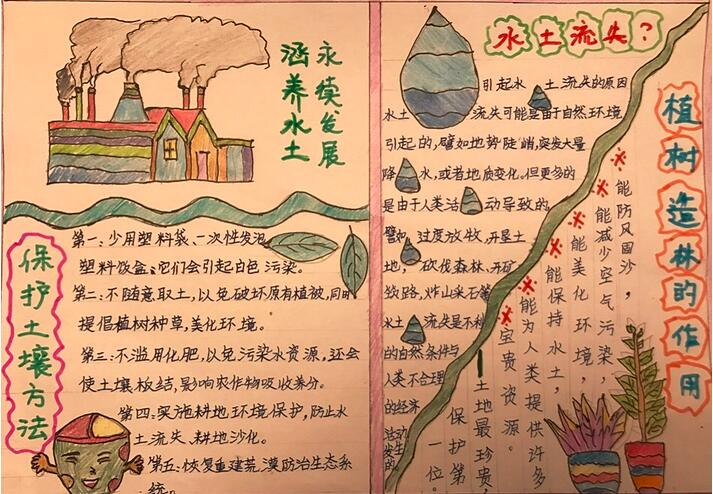 永续发展
涵养水土
保护土壤方法
第一:少用塑料袋、一次性发泡
塑料饭盒、它们会引起白色污染。
第二:不随意取土,以免破坏原有植被,同时
提倡植树种草,美化环境。
第三:不滥用化肥,以免污染水资源,还会
使土壤板结,影响农作物吸收养分。
第四:实施耕地环境保护,防止水
土流失、耕地沙化。
第五:恢复重建荒漠防治生态系
统。
水土流失?
引起水土流失的原因
水土流失可能是由于自然环境
引起的,譬如地势陡峭,突发大量
降水,或者地质变化。但更多的
是由于人类活动导致的,
譬如过度放牧,开垦土
地,砍伐森林、开矿
铁路,炸山采石等
水土流失是不利
的自然条件与
人类不合理
的经济
活动
发生的
植树造林的作用
※能防风固沙,
※能减少空气污染,
※能美化环境,
※能保持水土,
※能为人类提供许多
宝贵资源。
土地最珍贵,
保护第
一位。